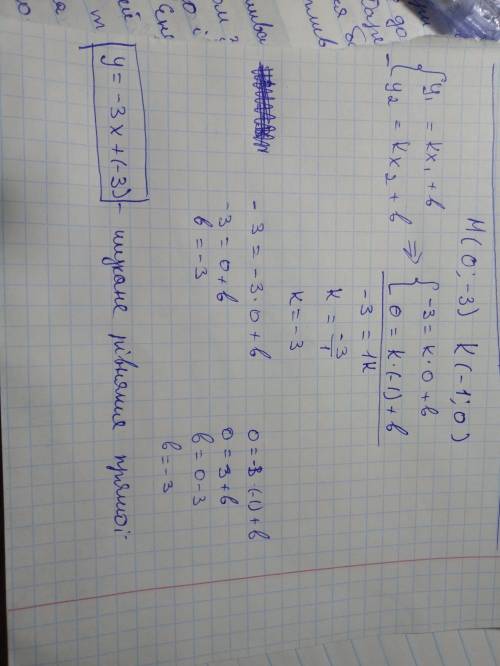 M(0; -3) K(-1; 0)
-{ y₁ = kx₁ + b
y₂ = kx₂ + b
⇒ { -3 = k·0 + b
0 = k·(-1) + b
-3 = 1k
k = -3/1
k = -3
-3 = -3·0 + b
-3 = 0 + b
b = -3
0 = -3·(-1) + b
0 = 3 + b
b = 0 - 3
b = -3
y = -3x + (-3) - шукане рівняння прямої